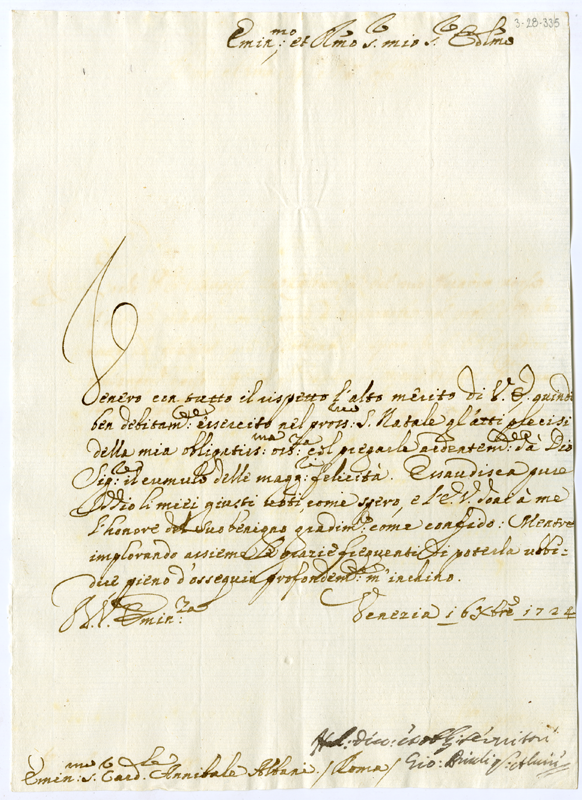 3-28-335
Emin:mo et Rmo S. mio S. Colmo
Venero con tutto il rispetto l'alto merito di V. E. quindi
ben debitam:te essercito nel pross:mo S. Natale gl'atti precisi
della mia obligatiss:ma oss:za col pregarle ardentem:te da Dio
Sig:re il cumulo delle magg:ri felicità. Essaudisca pure
Iddio li miei giusti voti come spero, e l'E. V. doni à me
l'honore del suo benigno gradim:to come confido: Mentre
implorando assieme le grazie frequenti di poterla ubbi-
dire pieno d'ossequio profondem:te m'inchino.
D. V. Emin:za
Venezia 16 Xbre 1724
Emin:mo S. Card:le Annibale Albani / Roma /
Gio: